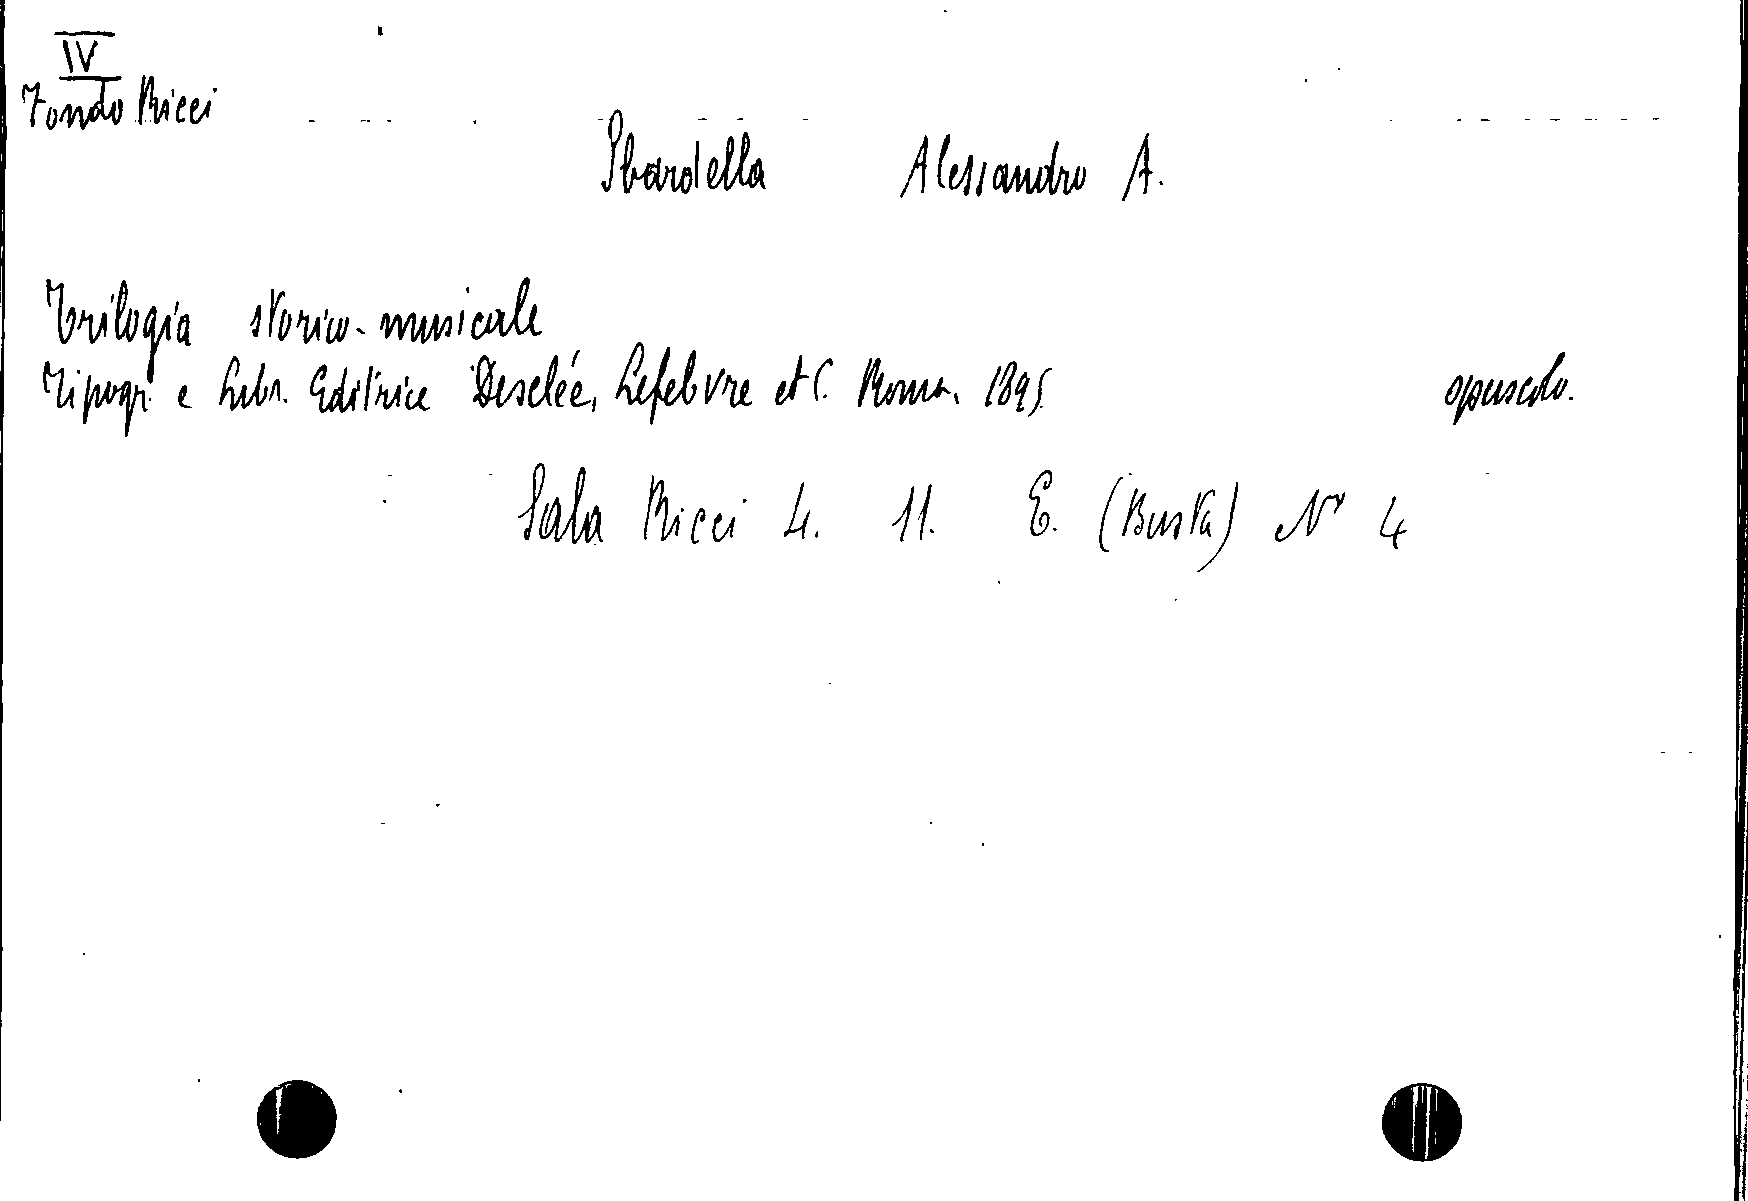 IV
Fondo Ricci
Sbardella Alessandro A.
Trilogia storico-musicale
Tipogr. e Libr. Editrice Desclée, Lefebvre et C. Roma. 1895 opuscolo.
Sala Ricci 4. 11. E. (Busta) Nº 4